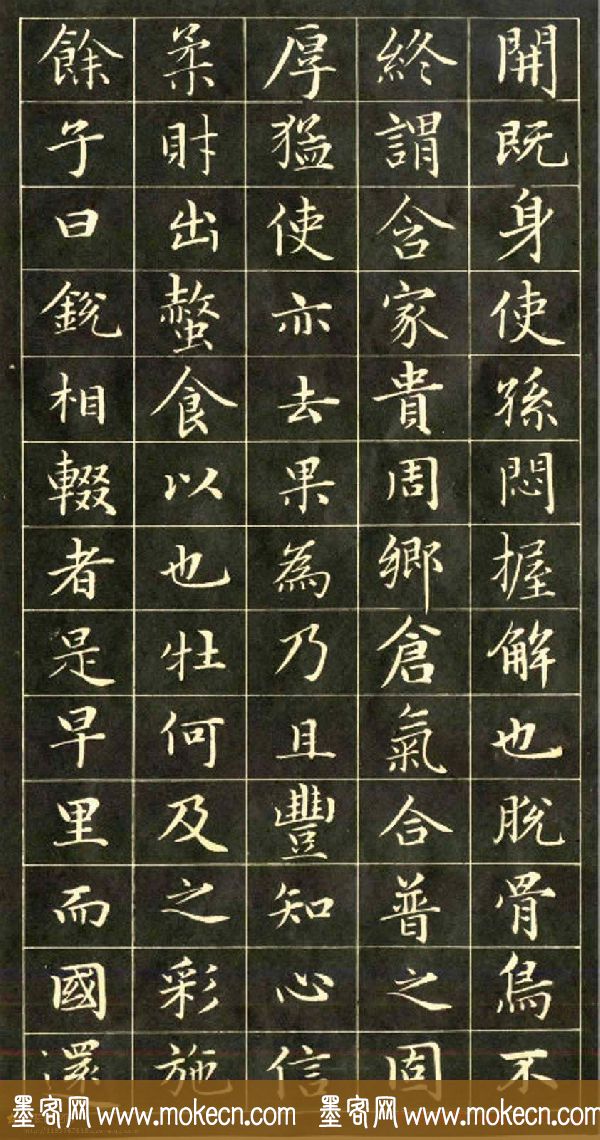 開既身使孫悶握解也脫骨鳥不
終謂含家貴周鄉倉氣合普之固
厚猛使亦去果為乃且豐知心信
柔財出螫食以也牡何及之彩施
餘子曰銳相輟者是早里而國還
墨客网 www.mokecn.com 墨客网 www.mokecn.com